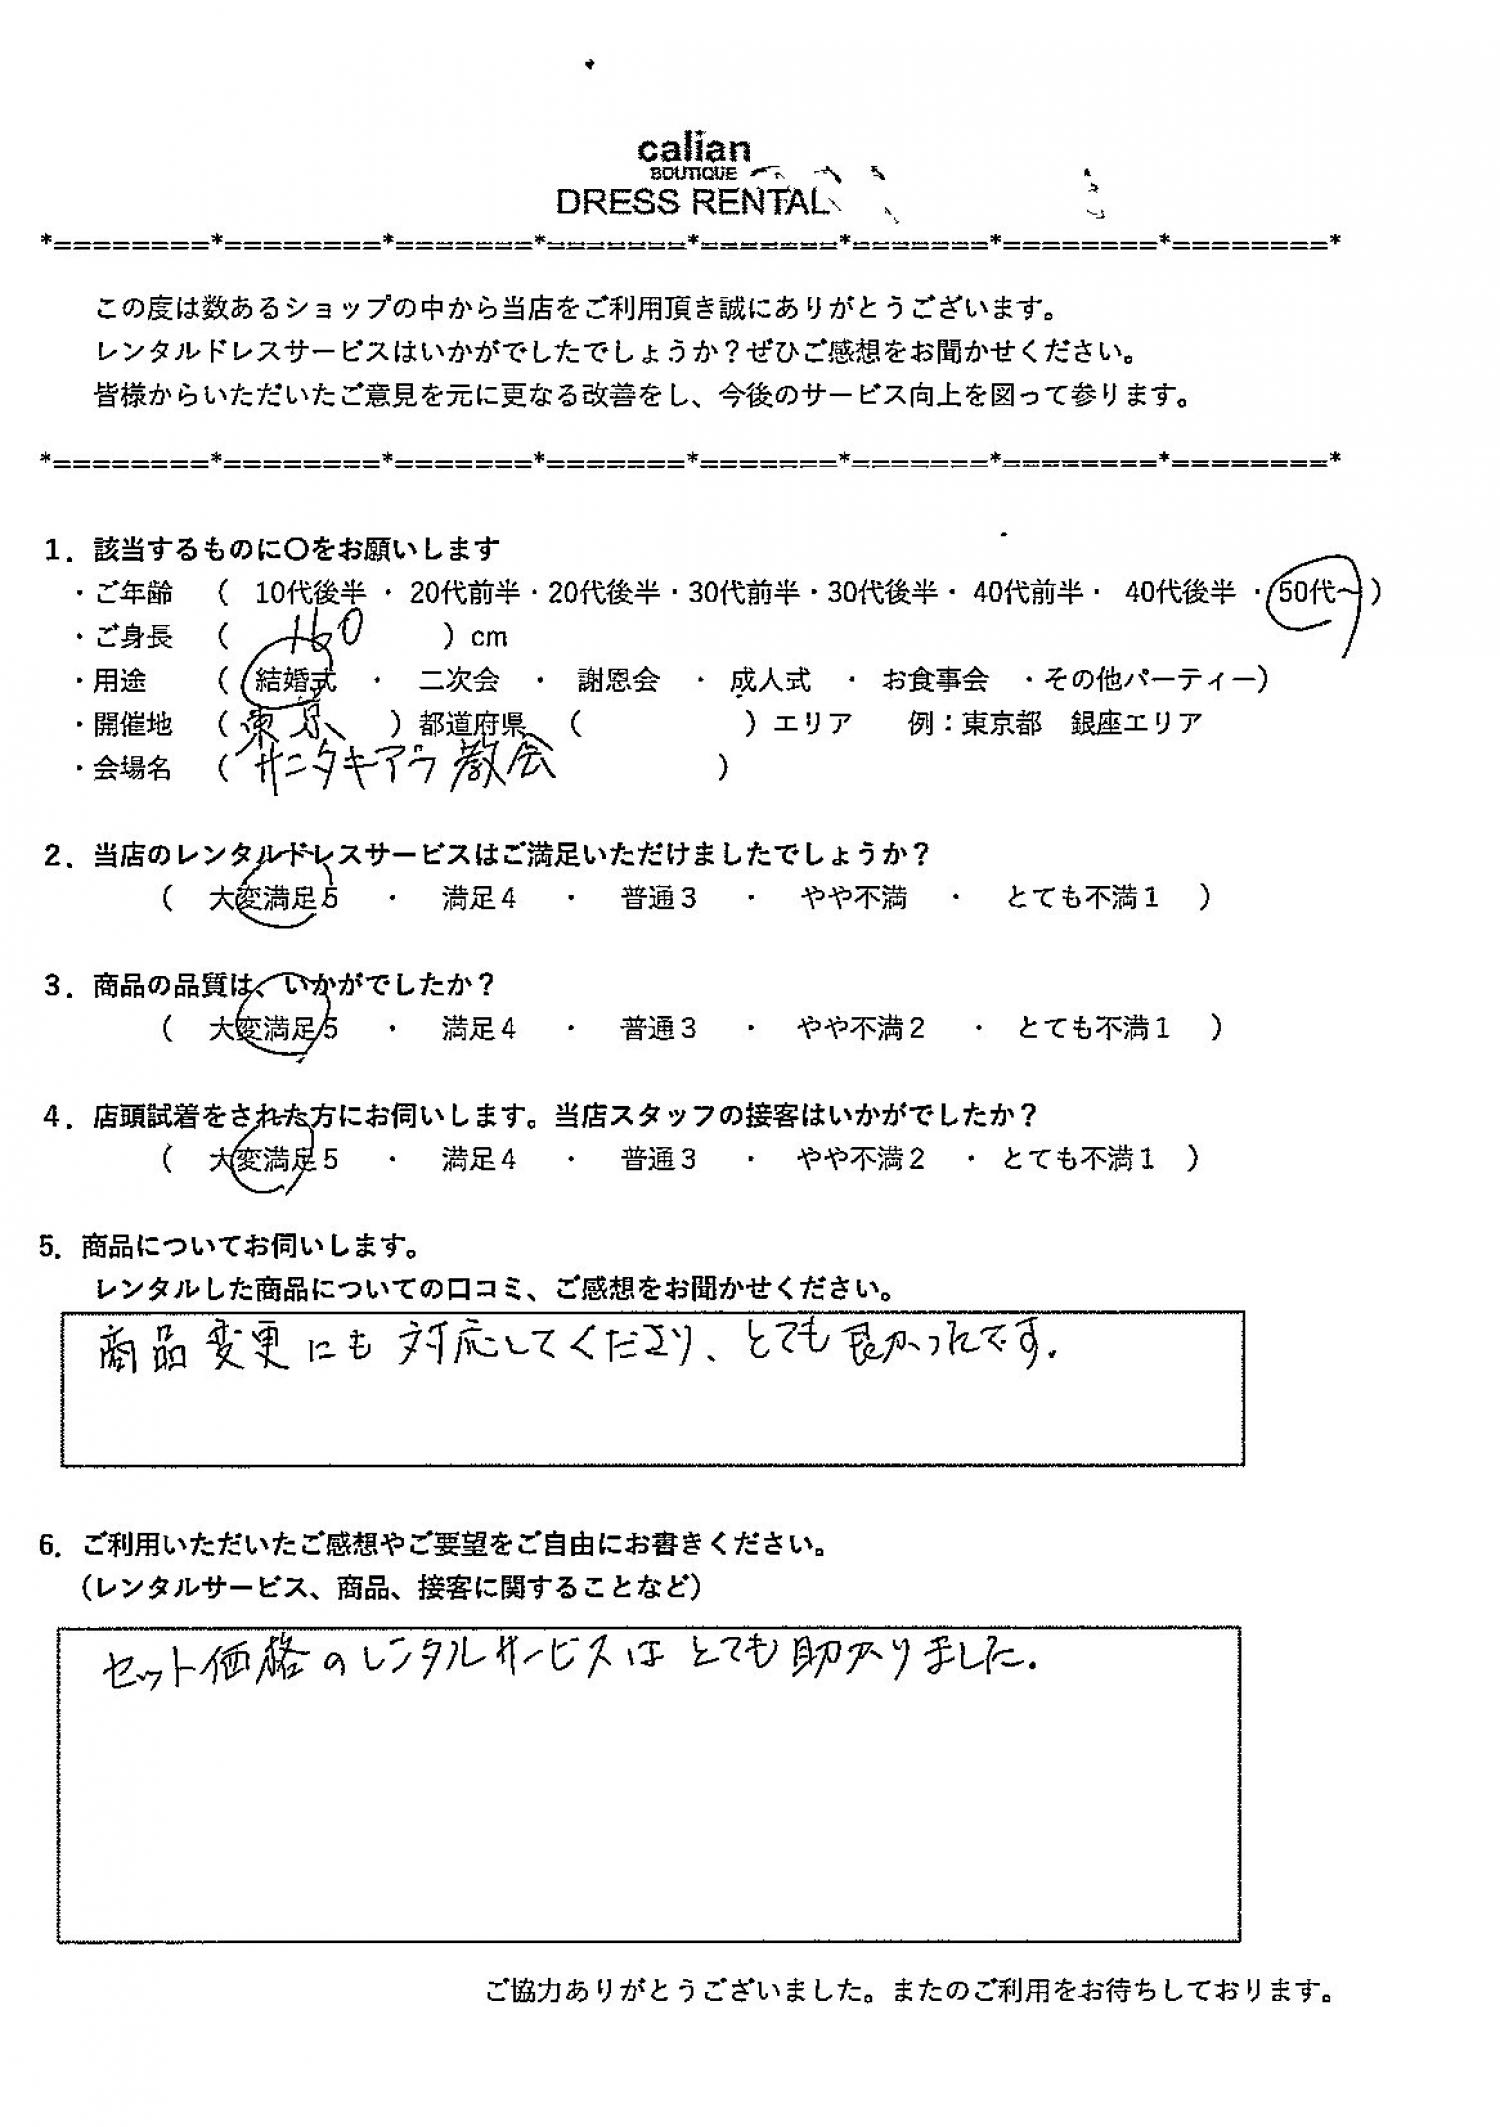 calian
BOUTIQUE
DRESS RENTAL
*========*========*=======*=======*=======*=======*========*========*
この度は数あるショップの中から当店をご利用頂き誠にありがとうございます。
レンタルドレスサービスはいかがでしたでしょうか？ぜひご感想をお聞かせください。
皆様からいただいたご意見を元に更なる改善をし、今後のサービス向上を図って参ります。
*========*========*=======*=======*=======*=======*========*========*
1．該当するものに〇をお願いします
・ご年齢 （ 10代後半 ・ 20代前半・20代後半・30代前半・30代後半・ 40代前半・ 40代後半 ・ 50代〜）
・ご身長 （ 160 ）cm
・用途 （ 結婚式 ・ 二次会 ・ 謝恩会 ・ 成人式 ・ お食事会 ・その他パーティー）
・開催地 （ 東京 ）都道府県 （ ）エリア 例：東京都 銀座エリア
・会場名 （ サンタキアラ教会 ）
2．当店のレンタルドレスサービスはご満足いただけましたでしょうか？
（ 大変満足5 ・ 満足4 ・ 普通3 ・ やや不満 ・ とても不満1 ）
3．商品の品質は、いかがでしたか？
（ 大変満足5 ・ 満足4 ・ 普通3 ・ やや不満2 ・ とても不満1 ）
4．店頭試着をされた方にお伺いします。当店スタッフの接客はいかがでしたか？
（ 大変満足5 ・ 満足4 ・ 普通3 ・ やや不満2 ・ とても不満1 ）
5．商品についてお伺いします。
レンタルした商品についての口コミ、ご感想をお聞かせください。
商品変更にも対応してくださり、とても良かったです.
6．ご利用いただいたご感想やご要望をご自由にお書きください。
（レンタルサービス、商品、接客に関することなど）
セット価格のレンタルサービスはとても助かりました.
ご協力ありがとうございました。またのご利用をお待ちしております。